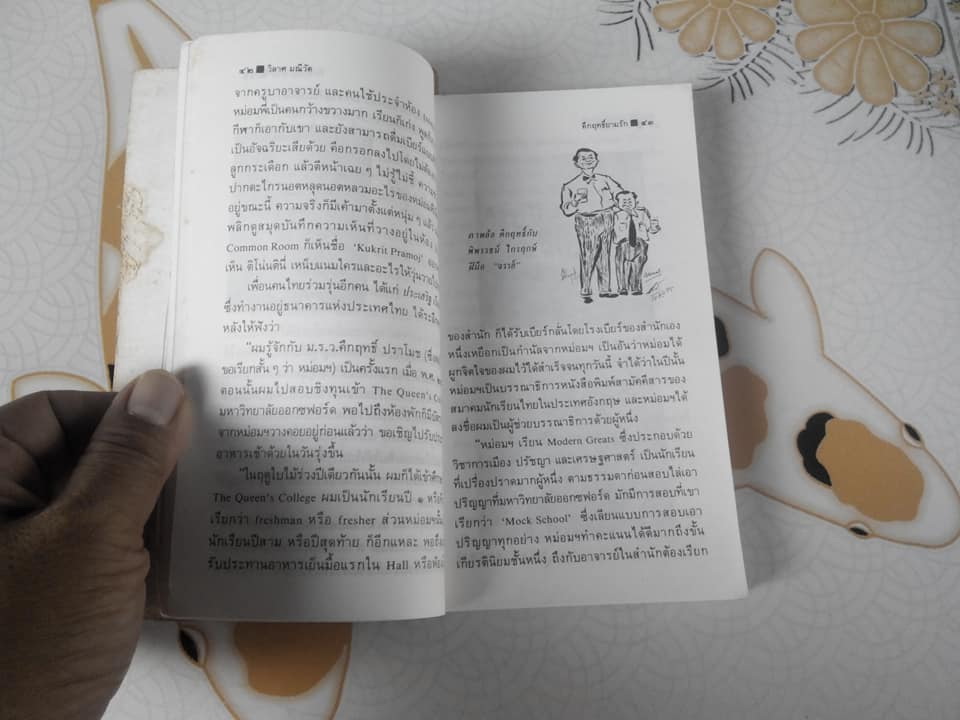 ๔๒ ■ วิลาศ มณีวัต
จากครูบาอาจารย์ และคนใช้ประจำห้อง
หม่อมพี่เป็นคนกว้างขวางมาก เรียนก็เก่ง
กีฬาก็เอากับเขา และยังสามารถดื่มเบียร์
เป็นอัจฉริยะเสียด้วย คือกรอกลงไปโดยไม่
ลูกกระเดือก แล้วตีหน้าเฉย ๆ ไม่รู้ไม่ชี้
ปากตะไกรนอตหลุดนอตหลวมอะไรของหม่อม
อยู่ขณะนี้ ความจริงก็มีเค้ามาตั้งแต่หนุ่ม ๆ
พลิกดูสมุดบันทึกความเห็นที่วางอยู่ในห้อง
Common Room ก็เห็นชื่อ 'Kukrit Pramoj'
เห็น ติโน่นตินี่ เหน็บแนมใครและอะไรให้วุ่นวาย
เพื่อนคนไทยร่วมรุ่นอีกคน ได้แก่ ประเสริฐ
ซึ่งทำงานอยู่ธนาคารแห่งประเทศไทย ได้
หลังให้ฟังว่า
"ผมรู้จักกับ ม.ร.ว.คึกฤทธิ์ ปราโมช
ขอเรียกสั้น ๆ ว่า หม่อมฯ) เป็นครั้งแรก เมื่อ พ.ศ.
ตอนนั้นผมไปสอบชิงทุนเข้า The Queen's
มหาวิทยาลัยออกซฟอร์ด พอไปถึงห้องพักก็มี
จากหม่อมฯวางคอยอยู่ก่อนแล้วว่า ขอเชิญไปรับ
อาหารเช้าด้วยในวันรุ่งขึ้น
"ในฤดูใบไม้ร่วงปีเดียวกันนั้น ผมก็ได้เข้า
The Queen's College ผมเป็นนักเรียนปี ๑
เรียกว่า freshman หรือ fresher ส่วนหม่อมฯ
นักเรียนปีสาม หรือปีสุดท้าย ก็อีกแหละ
รับประทานอาหารเย็นมื้อแรกใน Hall
คึกฤทธิ์ยามรัก ■ ๔๓
ภาพล้อ คึกฤทธิ์กับ
พิพรรธน์ ไกรฤกษ์
ฝีมือ "จราล์"
ของสำนัก ก็ได้รับเบียร์กลั่นโดยโรงเบียร์ของสำนักเอง
หนึ่งเหยือกเป็นกำนัลจากหม่อมฯ เป็นอันว่าหม่อมได้
ผูกจิตใจของผมไว้ได้สำเร็จจนทุกวันนี้ จำได้ว่าในปีนั้น
หม่อมฯเป็นบรรณาธิการหนังสือพิมพ์สามัคคีสารของ
สมาคมนักเรียนไทยในประเทศอังกฤษ และหม่อมฯได้
ลงชื่อผมเป็นผู้ช่วยบรรณาธิการด้วยผู้หนึ่ง
"หม่อมฯ เรียน Modern Greats ซึ่งประกอบด้วย
วิชาการเมือง ปรัชญา และเศรษฐศาสตร์ เป็นนักเรียน
ที่เปรื่องปราดมากผู้หนึ่ง ตามธรรมดาก่อนสอบไล่เอา
ปริญญาที่มหาวิทยาลัยออกซฟอร์ด มักมีการสอบที่เขา
เรียกว่า 'Mock School' ซึ่งเลียนแบบการสอบเอา
ปริญญาทุกอย่าง หม่อมฯทำคะแนนได้ดีมากถึงขั้น
เกียรตินิยมชั้นหนึ่ง ถึงกับอาจารย์ในสำนักต้องเรียก